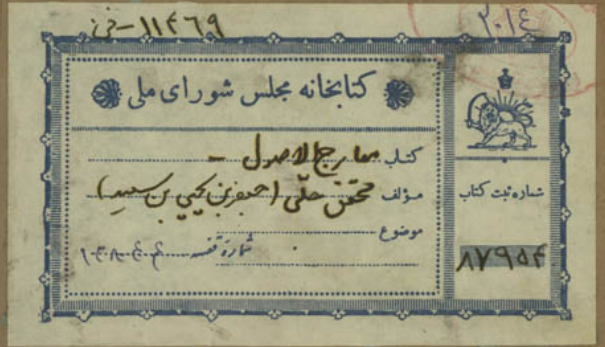 ۱۱۴۶۹-فن
۲۰۱٤
کتابخانه مجلس شورای ملی
کتاب معارج الاصول -
مؤلف محقق حلّی (جعفر بن یحیی بن سعید)
موضوع
شمارهٔ قفسه
شماره ثبت کتاب
۸۷۹۵۴